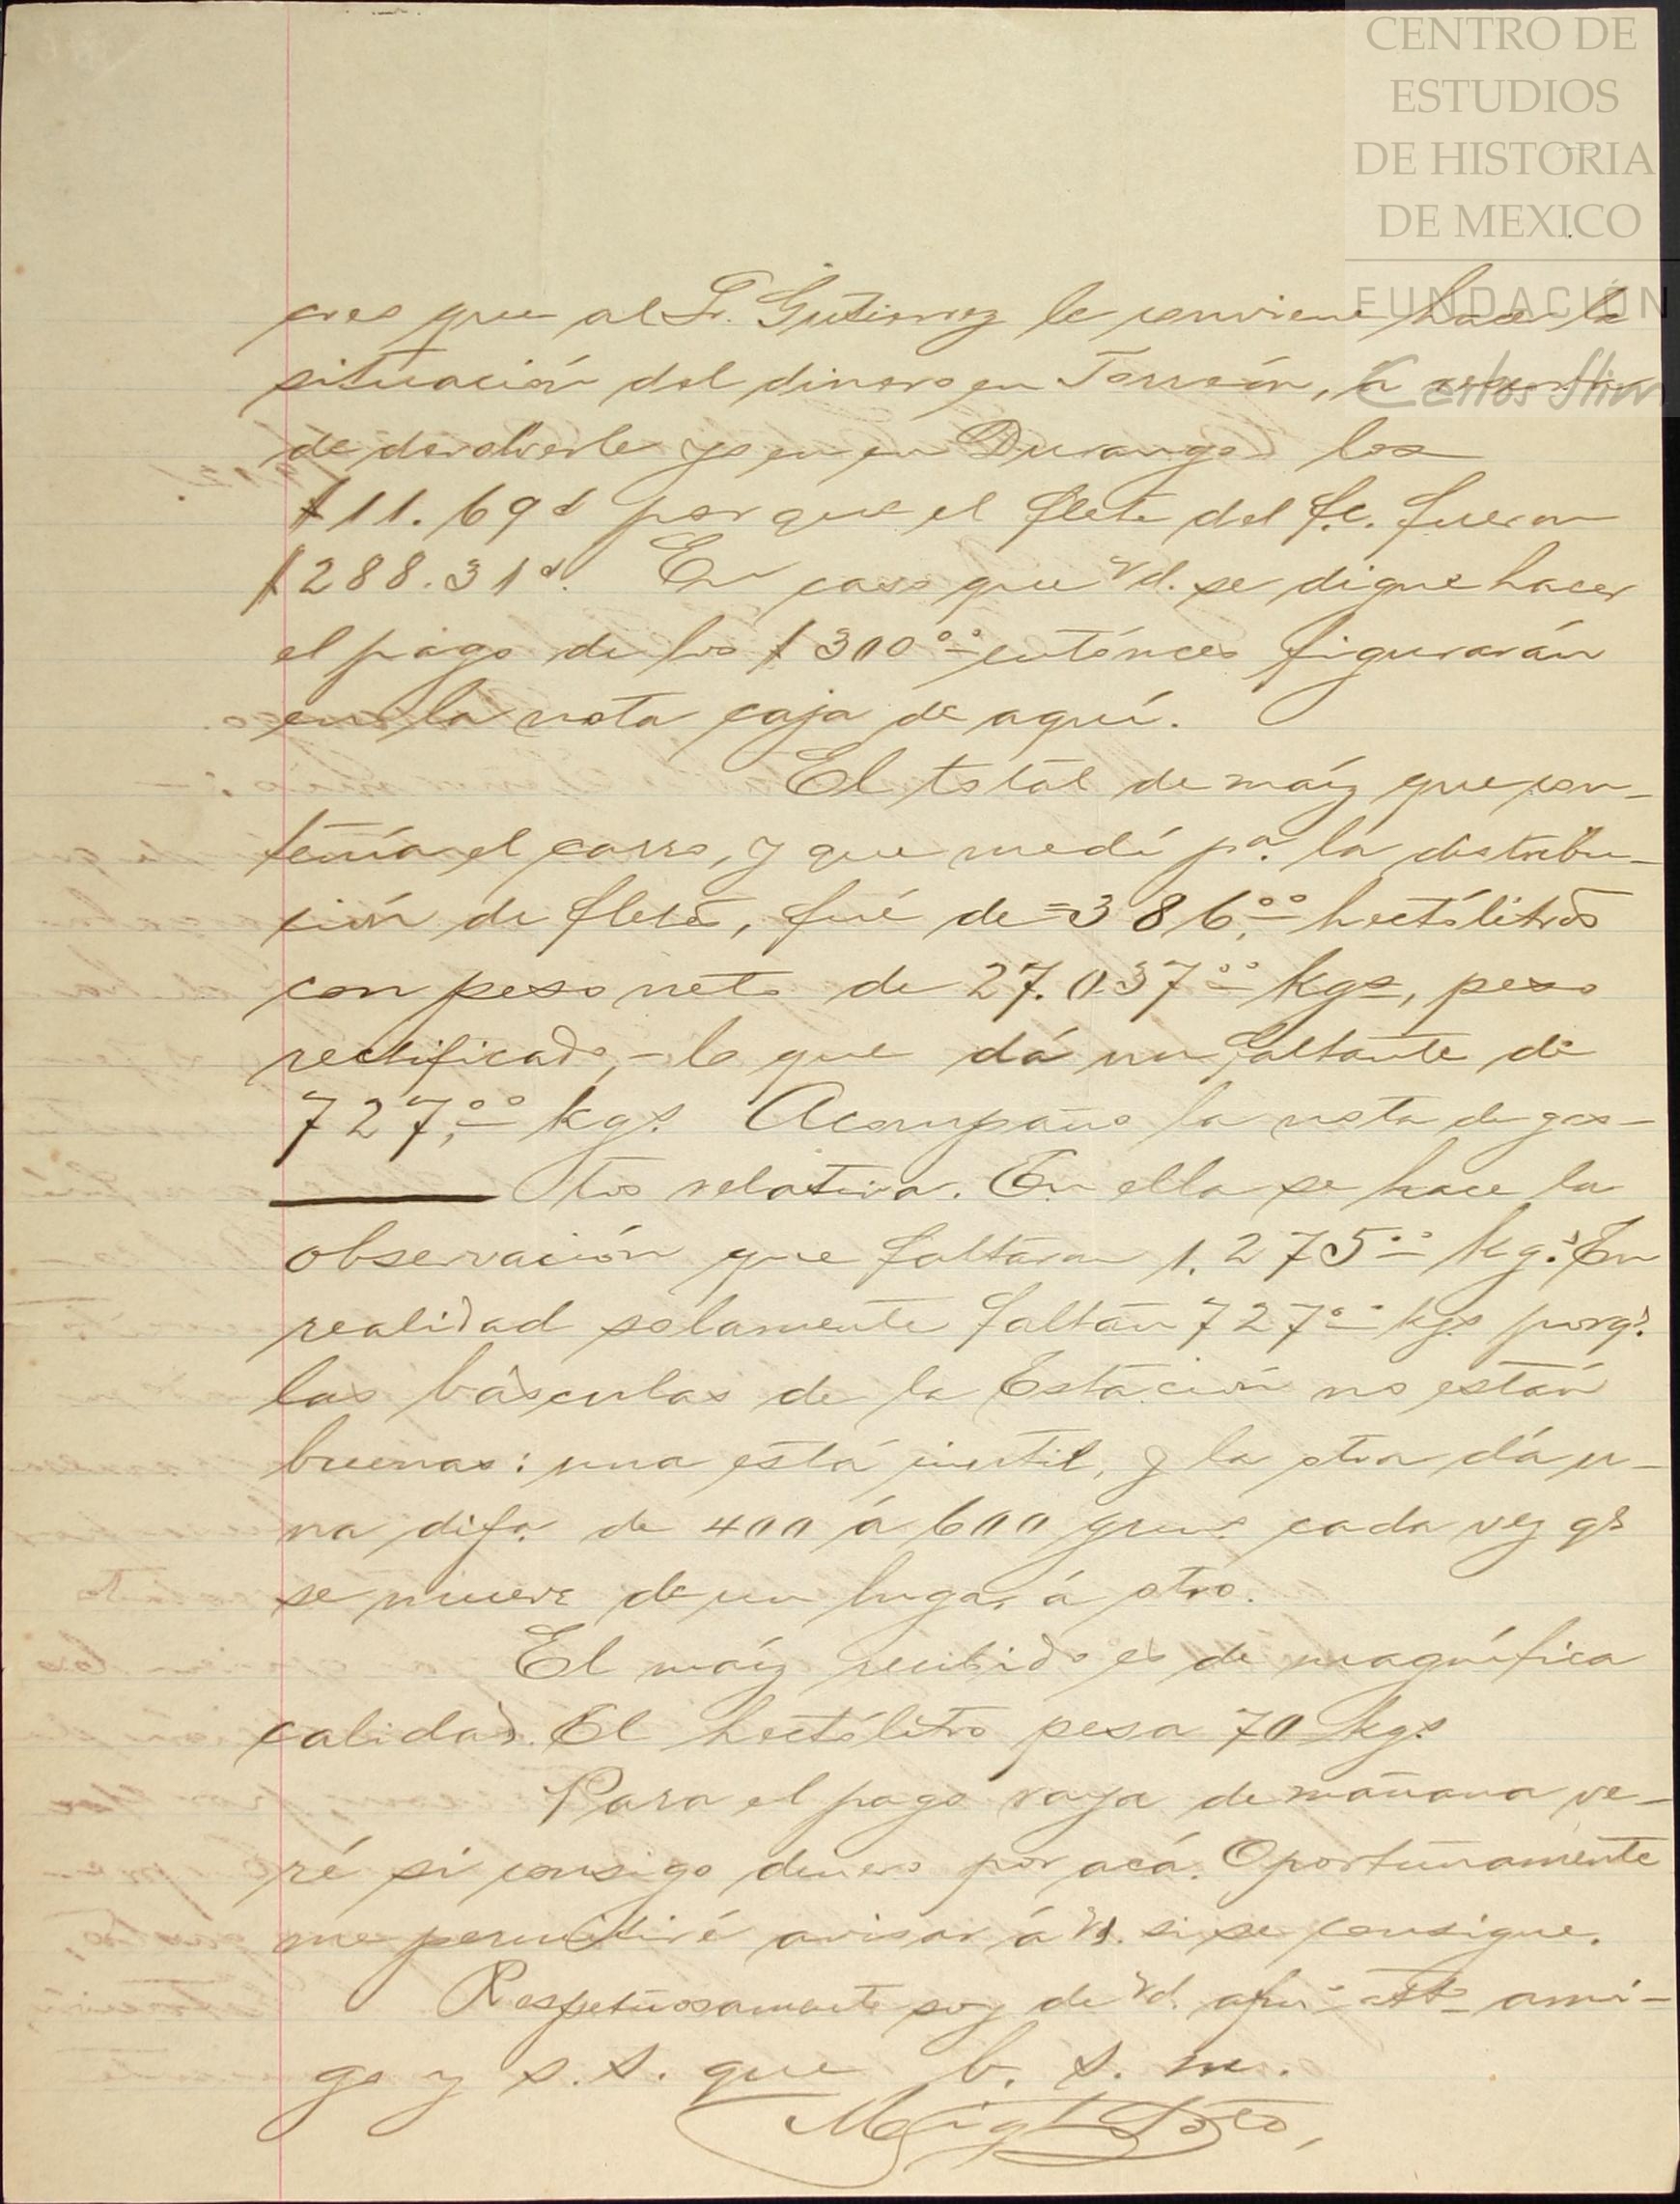 CENTRO DE
ESTUDIOS
DE HISTORIA
DE MEXICO
FUNDACIÓN
Carlos Slim
creo que al Sr. Gutierrez le conviene hacer la
situación del dinero en Torreón, á
de devolverle yo en Durango los
$11.69 c porque el flete del f.c. fueron
$288.31 c. En caso que Vd. se digne hacer
el pago de los $300.00 entónces figurarán
en la nota caja de aquí.
El totál de maíz que con-
tenía el carro, y que medí pa. la distribu-
ción de fletes, fué de = 386,00 hectólitros
con peso neto de 27.037.00 kgs, peso
rectificado, - lo que dá un faltante de
727,00 kgs. Acompaño la nota de gas-
tos relativa. En ella se hace la
observación que faltaron 1.275.00 kgs. En
realidad solamente faltan 727.00 kgs porqe.
las básculas de la Estación no están
buenas: una está inutil, y la otra dá u-
na difa. de 400 á 600 grms cada vez qe
se mueve de un lugar á otro.
El maíz recibido es de magnífica
calidad. El hectólitro pesa 70 kgs
Para el pago raya de mañana ve-
ré si consigo dinero por acá. Oportunamente
me permitiré avisar á Vd. si se consigue.
Respetuosamente soy de Vd. afmo atto ami-
go y s. s. que b. s. m.
Migl